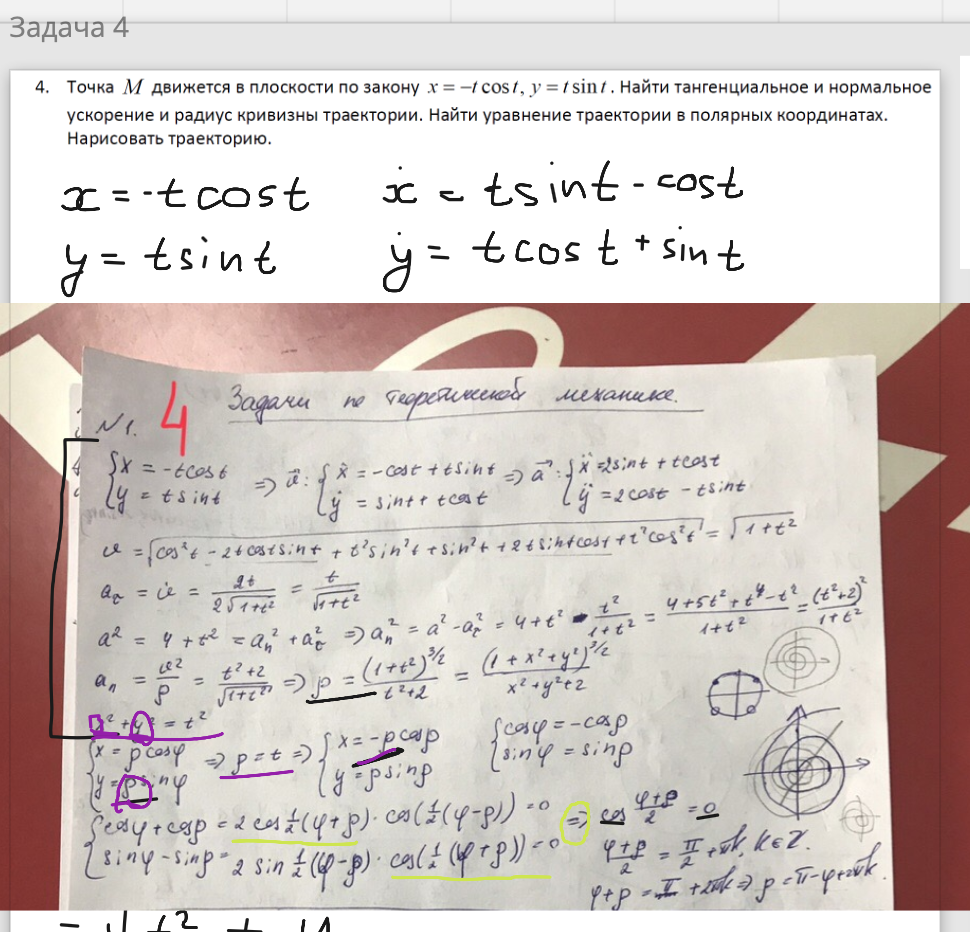 Задача 4
4. Точка M движется в плоскости по закону x = −t cos t, y = t sin t. Найти тангенциальное и нормальное
ускорение и радиус кривизны траектории. Найти уравнение траектории в полярных координатах.
Нарисовать траекторию.
x = -t cost ẋ = t sint - cost
y = t sint ẏ = t cost + sint
4 Задачи по теоретической механике.
N1.
{x = -tcost => v⃗: {ẋ = -cost + tsint => a⃗: {ẍ = 2sint + tcost
{y = tsint {ẏ = sint + tcost {ÿ = 2cost - tsint
v = √(cos²t - 2tcostsint + t²sin²t + sin²t + 2tsintcost + t²cos²t) = √(1+t²)
a_τ = v̇ = 2t/(2√(1+t²)) = t/√(1+t²)
a² = 4 + t² = a_n² + a_τ² => a_n² = a² - a_τ² = 4 + t² - t²/(1+t²) = (4+5t²+t⁴-t²)/(1+t²) = (t²+2)²/(1+t²)
a_n = v²/ρ = (t²+2)/√(1+t²) => ρ = (1+t²)^(3/2)/(t²+2) = (1+x²+y²)^(3/2)/(x²+y²+2)
x² + y² = t²
{x = ρcosφ => ρ = t => {x = -ρcosρ {cosφ = -cosρ
{y = ρsinφ {y = ρsinρ {sinφ = sinρ
{cosφ + cosρ = 2cos½(φ+ρ)·cos(½(φ-ρ)) = 0 => cos (φ+ρ)/2 = 0
{sinφ - sinρ = 2sin½(φ-ρ)·cos(½(φ+ρ)) = 0 (φ+ρ)/2 = π/2 + πk, k∈Z.
φ+ρ = π + 2πk => ρ = π-φ+2πk.